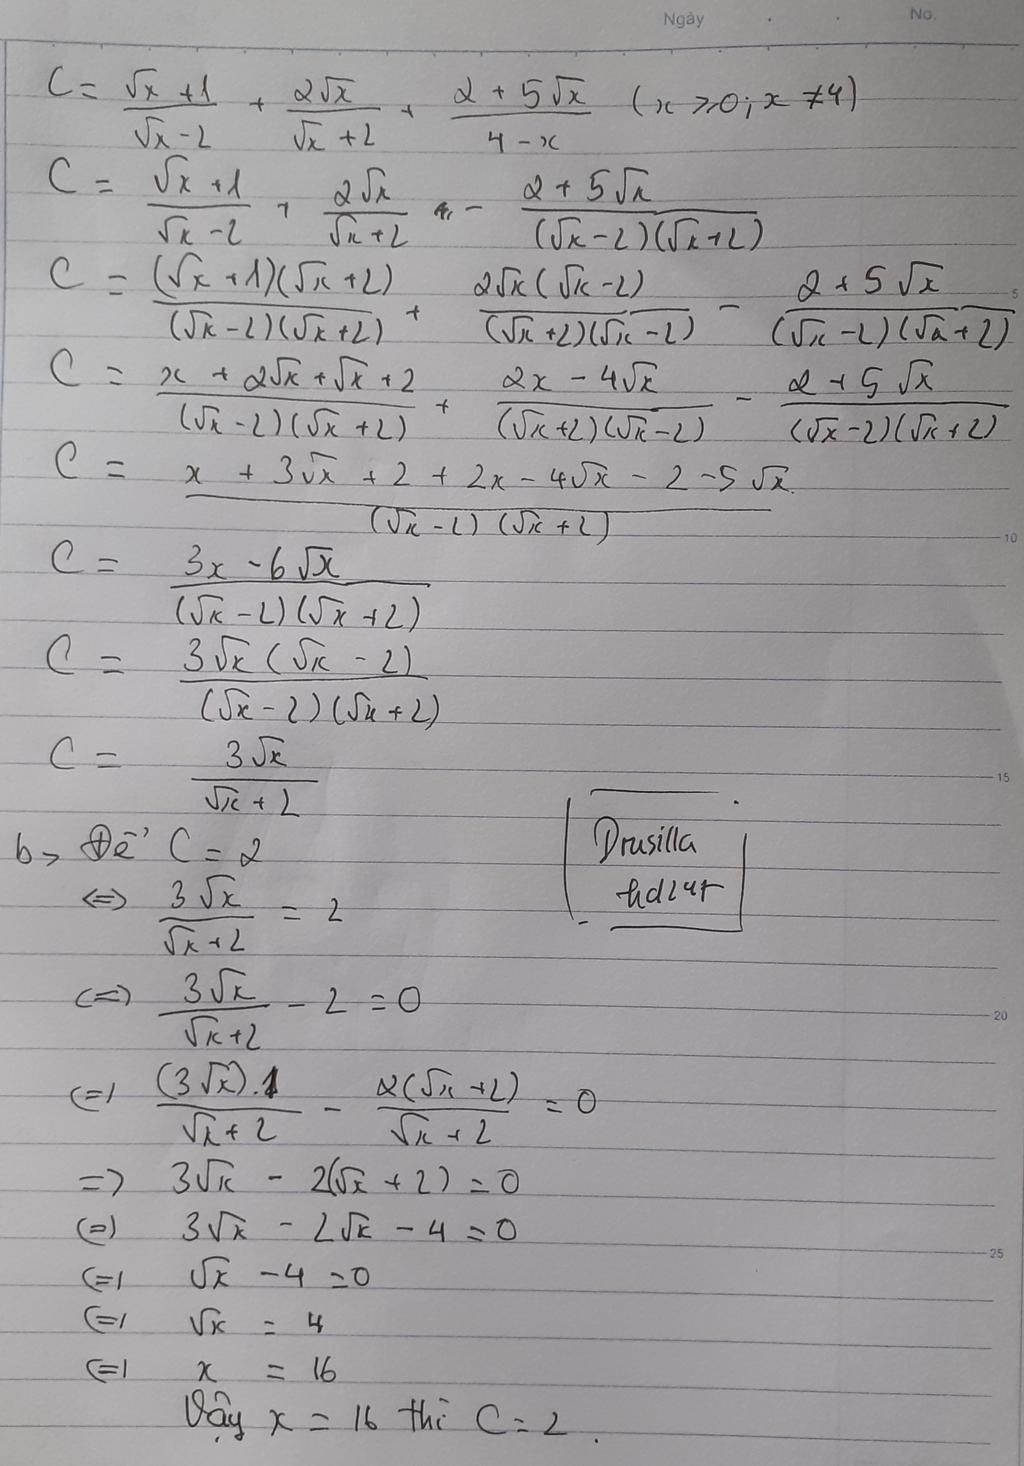 Ngày . . No.
C = (√x + 1)/(√x - 2) + 2√x/(√x + 2) + (2 + 5√x)/(4 - x) (x ⩾ 0; x ≠ 4)
C = (√x + 1)/(√x - 2) + 2√x/(√x + 2) - (2 + 5√x)/((√x - 2)(√x + 2))
C = (√x + 1)(√x + 2)/((√x - 2)(√x + 2)) + 2√x(√x - 2)/((√x + 2)(√x - 2)) - (2 + 5√x)/((√x - 2)(√x + 2))
5
C = (x + 2√x + √x + 2)/((√x - 2)(√x + 2)) + (2x - 4√x)/((√x + 2)(√x - 2)) - (2 + 5√x)/((√x - 2)(√x + 2))
C = (x + 3√x + 2 + 2x - 4√x - 2 - 5√x)/((√x - 2)(√x + 2))
10
C = (3x - 6√x)/((√x - 2)(√x + 2))
C = 3√x(√x - 2)/((√x - 2)(√x + 2))
C = 3√x/(√x + 2)
15
b, Để C = 2
Drusilla
<=> 3√x/(√x + 2) = 2
<=> 3√x/(√x + 2) - 2 = 0
20
<=> (3√x).1/(√x + 2) - 2(√x + 2)/(√x + 2) = 0
=> 3√x - 2(√x + 2) = 0
<=> 3√x - 2√x - 4 = 0
25
<=> √x - 4 = 0
<=> √x = 4
<=> x = 16
Vậy x = 16 thì C = 2.